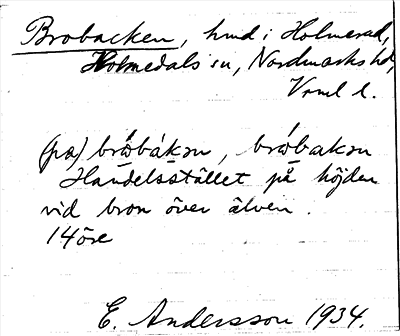 Brobacken, hmd i Holmerad,
Holmedals sn, Nordmarks hd,
Vrml l.
(pɑ) brωbákən, brωbakən
Handelsstället på höjden
vid bron över älven.
14öre
E. Andersson 1934.